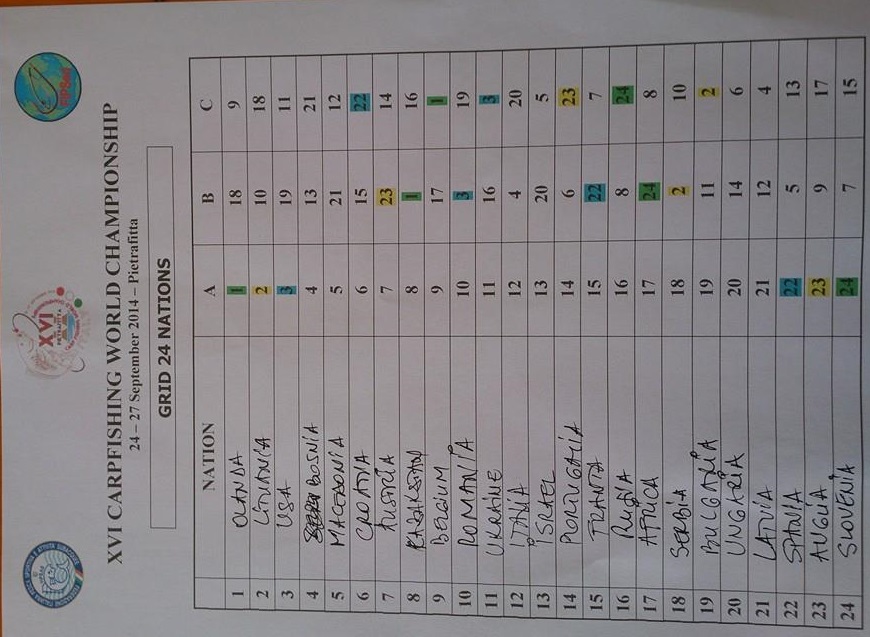 XVI
PIETRAFITTA
FIPSed
XVI CARPFISHING WORLD CHAMPIONSHIP
24 – 27 September 2014 – Pietrafitta
GRID 24 NATIONS
NATION A B C
1 OLANDA 1 18 9
2 LITUANIA 2 10 18
3 USA 3 19 11
4 BOSNIA 4 13 21
5 MACEDONIA 5 21 12
6 CROATIA 6 15 22
7 AUSTRIA 7 23 14
8 KAZAKSTAN 8 1 16
9 BELGIUM 9 17 1
10 ROMANIA 10 3 19
11 UKRAINE 11 16 3
12 ITALIA 12 4 20
13 ISRAEL 13 20 5
14 PORTUGALIA 14 6 23
15 FRANTA 15 22 7
16 RUSIA 16 8 24
17 AFRICA 17 24 8
18 SERBIA 18 2 10
19 BULGARIA 19 11 2
20 UNGARIA 20 14 6
21 LATVIA 21 12 4
22 SPANIA 22 5 13
23 ANGLIA 23 9 17
24 SLOVENIA 24 7 15